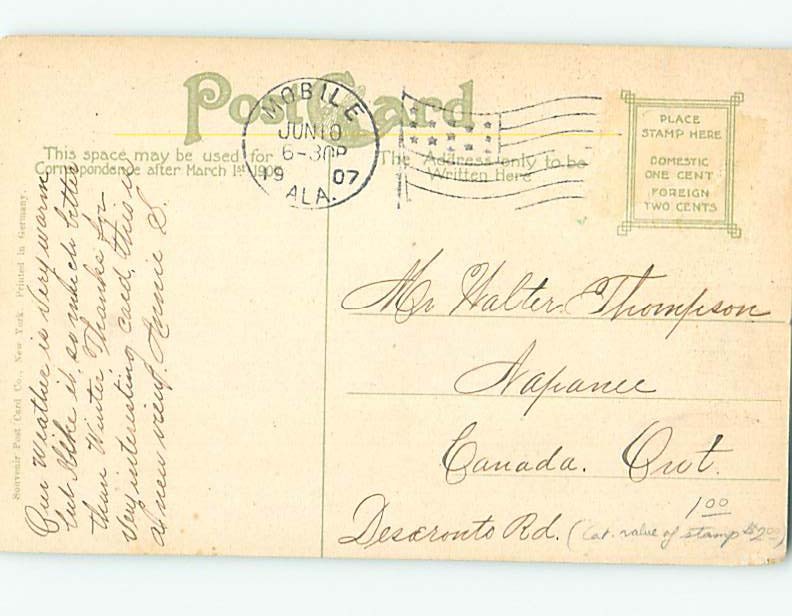 Post Card
MOBILE
JUN 10
6-30P
19 07
ALA.
This space may be used for
Correspondence after March 1st 1909
The Address only to be
Written Here
PLACE
STAMP HERE
DOMESTIC
ONE CENT
FOREIGN
TWO CENTS
Souvenir Post Card Co., New York. Printed in Germany.
Our weather is very warm
but I like it so much better
than Winter. Thanks for
very interesting card, this is
a new view, Annie D.
Mr Walter Thompson
Napanee
Canada. Ont.
Deseronto Rd.
1 00
(Cat. value of stamp $2.00)